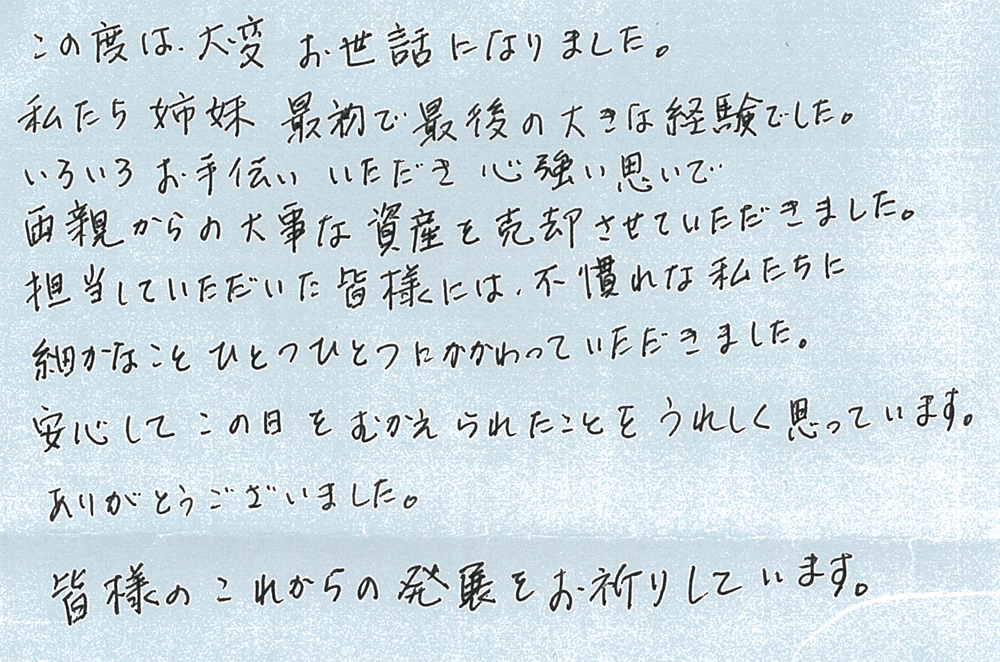 この度は、大変 お世話になりました。
私たち 姉妹 最初で最後の大きな経験でした。
いろいろ お手伝い いただき 心強い思いで
両親からの大事な資産を売却させていただきました。
担当していただいた皆様には、不慣れな私たちに
細かなこと ひとつひとつにかかわっていただきました。
安心して この日を むかえられたことを うれしく思っています。
ありがとうございました。
皆様のこれからの発展をお祈りしています。